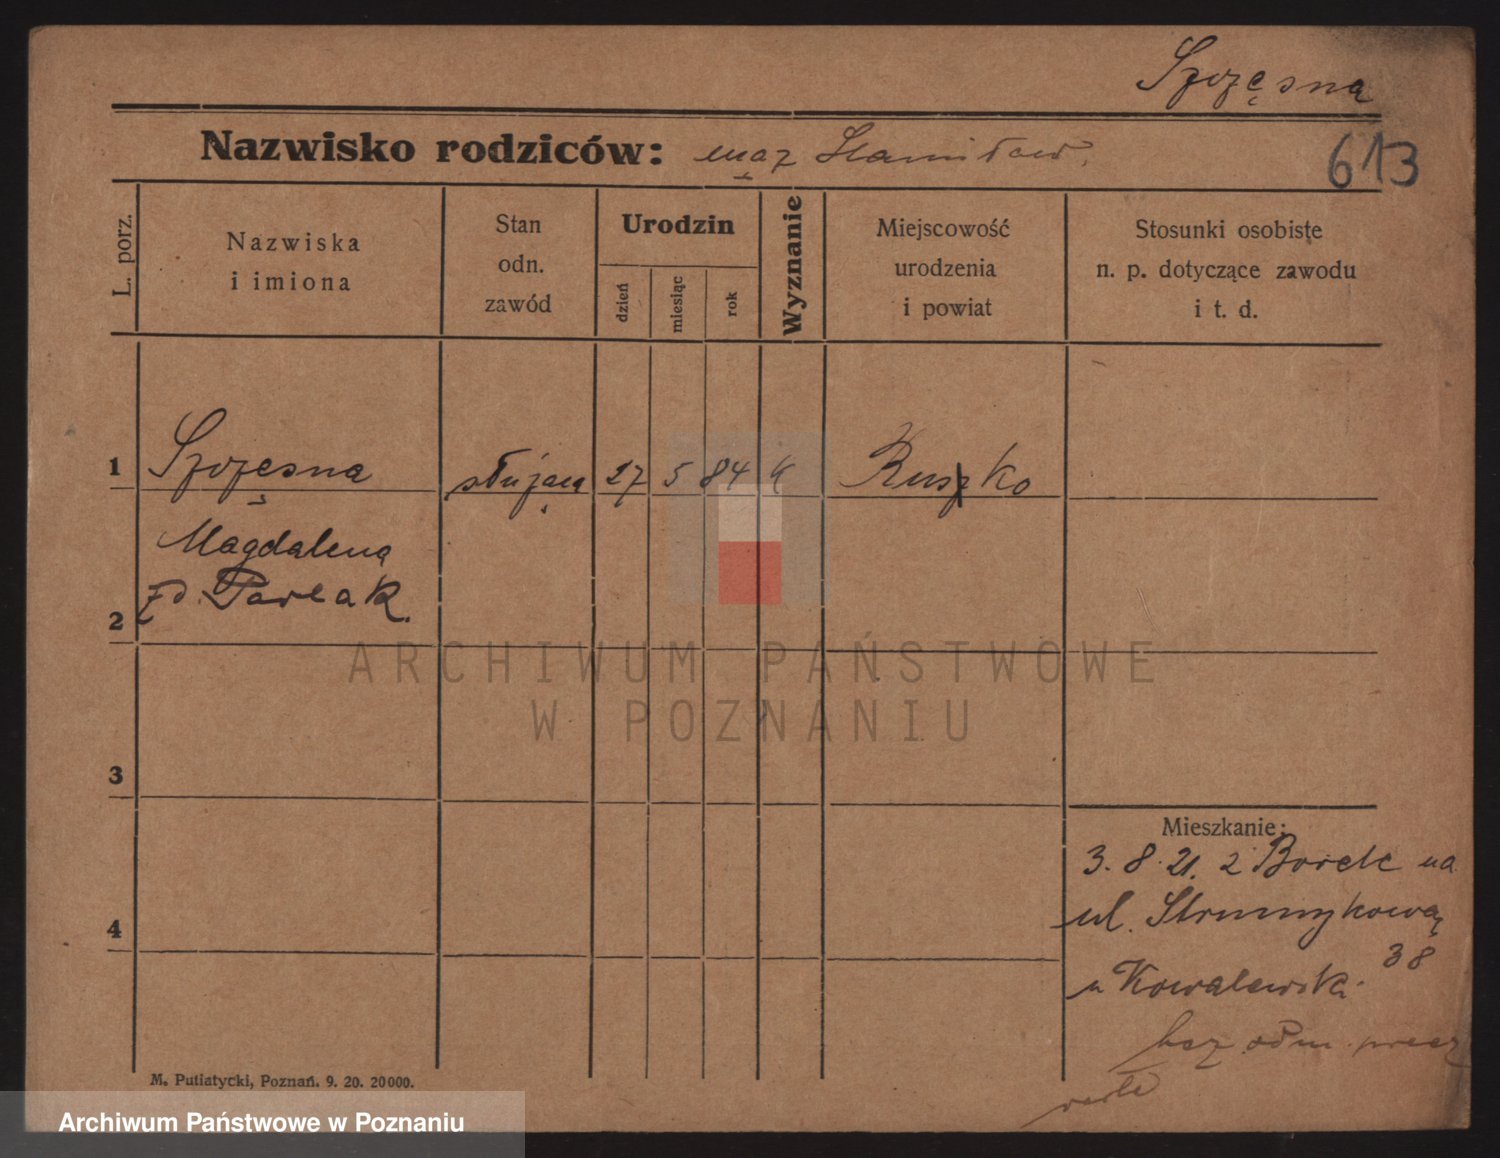 Szczęsna
Nazwisko rodziców: mąż Stanisław.
613
L. porz.
Nazwiska
i imiona
Stan
odn.
zawód
Urodzin
dzień
miesiąc
rok
Wyznanie
Miejscowość
urodzenia
i powiat
Stosunki osobiste
n. p. dotyczące zawodu
i t. d.
1 Szczęsna służąca 27 5 84 k Ruszko
Magdalena
2 zd. Pawlak.
3
4
Mieszkanie:
3. 8. 21. z Borek na
ul. Strumykową
38
u Kowalewska.
bez odm.
M. Putiatycki, Poznań. 9. 20. 20000.
ARCHIWUM PAŃSTWOWE
W POZNANIU
Archiwum Państwowe w Poznaniu